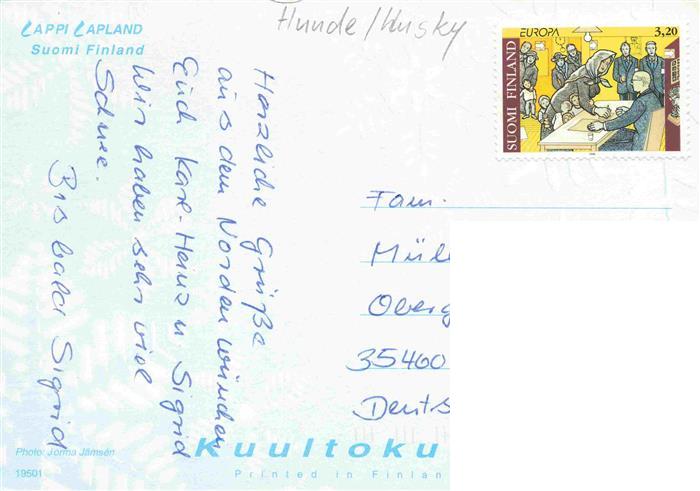 LAPPI LAPLAND
Suomi Finland
Hunde/Husky
EUROPA
3,20
SUOMI FINLAND
Herzliche Grüße
aus dem Norden wünschen
Euch Karl-Heinz u Sigrid
Wir haben sehr viel
Schnee.
Bis bald Sigrid
Fam.
Mül
Oberg
35460
Deuts
Kuultoku
Printed in Finlan
Photo: Jorma Jämsén
19501